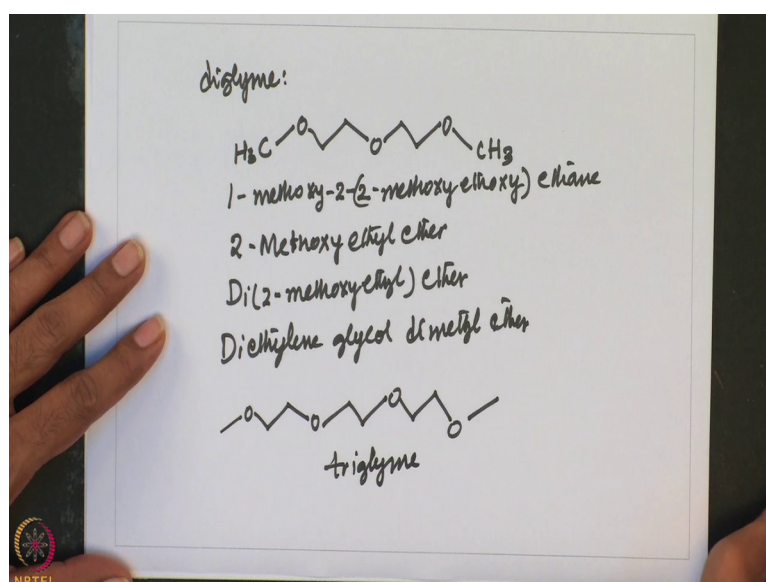 diglyme:
H3C O O O CH3
1-methoxy-2-(2-methoxyethoxy) ethane
2-Methoxy ethyl ether
Di(2-methoxyethyl) ether
Diethylene glycol dimethyl ether
O O O O
triglyme
NPTEL